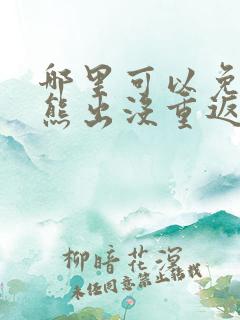 哪里可以免
熊出没重返
柳暗花溟
未经同意禁止转载